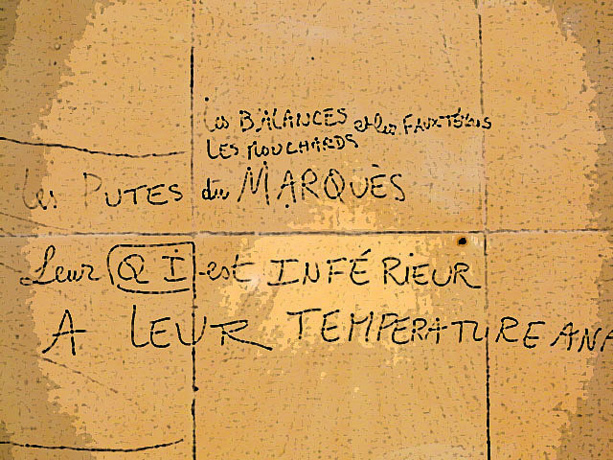 les BALANCES et les FAUX TÉMOINS
LES MOUCHARDS
les PUTES du MARQUÈS
Leur QI est INFÉRIEUR
A LEUR TEMPERATURE ANA